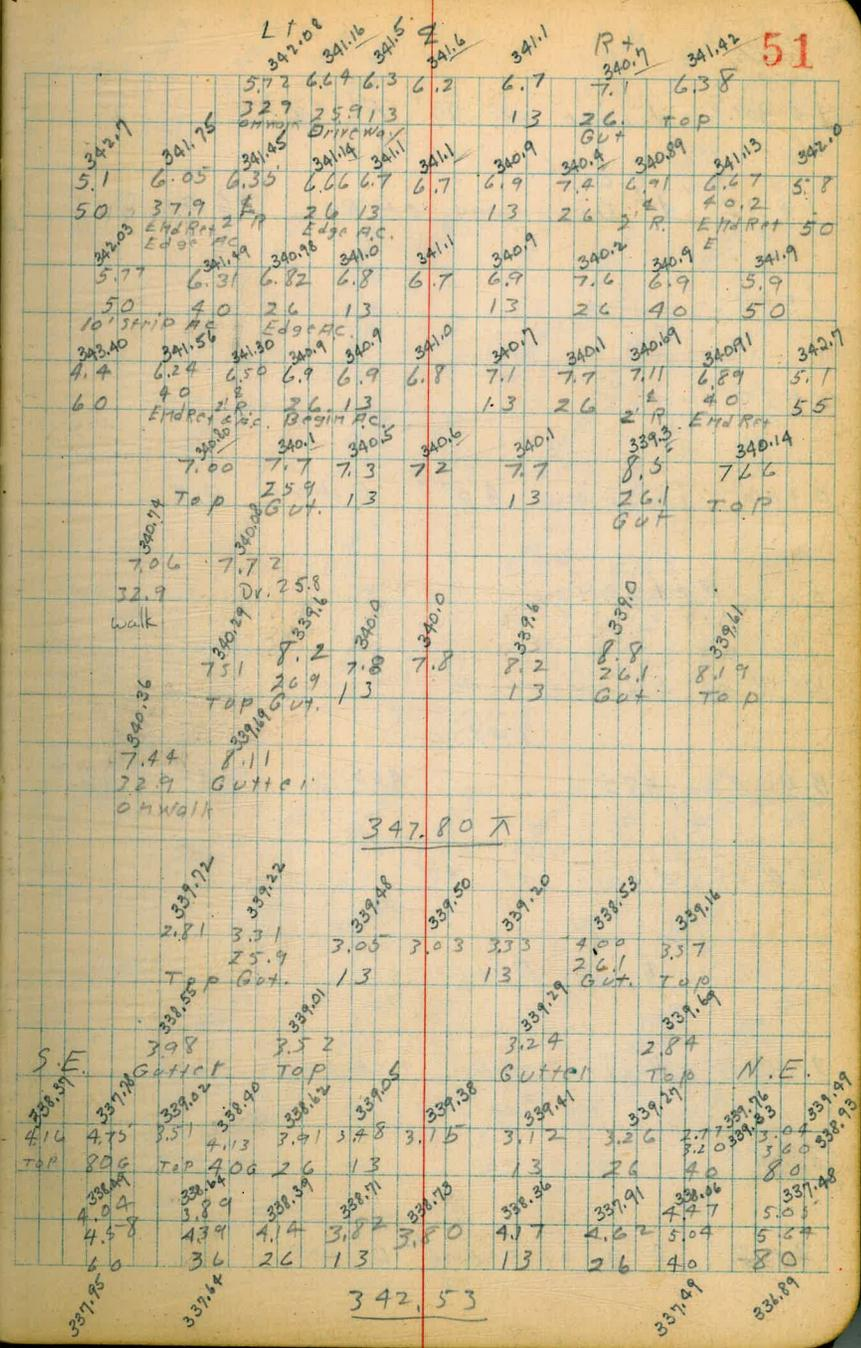 Lt ℄ Rt 51
342.08 341.16 341.5 341.6 341.1 340.7 341.42
5.72 6.64 6.3 6.2 6.7 7.1 6.38
32.9 25.9 13 13 26. Top
on walk Driveway Gut
342.7 341.75 341.45 341.14 341.1 341.1 340.9 340.4 340.89 341.13 342.0
5.1 6.05 6.35 6.66 6.7 6.7 6.9 7.4 6.91 6.67 5.8
50 37.9 26 13 13 26 40.2 50
End Ret 2' R Edge A.C. 2' R. End Ret
Edge A.C. E
342.03 341.49 340.98 341.0 341.1 340.9 340.2 340.9 341.9
5.77 6.31 6.82 6.8 6.7 6.9 7.6 6.9 5.9
50 40 26 13 13 26 40 50
10' Strip AC Edge AC.
343.40 341.56 341.30 340.9 340.9 341.0 340.7 340.1 340.69 340.91 342.7
4.4 6.24 6.50 6.9 6.9 6.8 7.1 7.7 7.11 6.89 5.1
60 40 26 13 13 26 40 55
End Ret 2' R. Begin AC. 2' R End Ret
340.80 340.1 340.5 340.6 340.1 339.3 340.14
7.00 7.7 7.3 7.2 7.7 8.5 7.66
Top 25.9 13 13 26.1 Top
Gut. Gut
340.74 340.08
7.06 7.72
32.9 Dr. 25.8
walk
340.29 339.6 340.0 340.0 339.6 339.0 339.61
7.51 8.2 7.8 7.8 8.2 8.8 8.19
26.9 13 13 26.1
Top Gut. Gut Top
340.36 339.69
7.44 8.11
32.9 Gutter
on walk
347.80 ⊼
339.72 339.22 339.48 339.50 339.20 338.53 339.16
2.81 3.31 3.05 3.03 3.33 4.00 3.37
25.9 26.1
Top Gut. 13 13 Gut. Top
338.55 339.01 339.29 339.69
3.98 3.52 3.24 2.84
S.E. Gutter Top Gutter Top N.E.
338.37 337.78 339.02 338.40 338.62 339.05 339.38 339.41 339.27 339.76 339.33 339.49 338.93
4.16 4.75 3.51 4.13 3.91 3.48 3.15 3.12 3.26 2.77 3.04
3.20 3.60
Top 80G Top 40G 26 13 13 26 40 80
338.49 338.64 338.39 338.71 338.73 338.36 337.91 338.06 337.48
4.04 3.89 4.47 5.05
4.58 4.39 4.14 3.82 3.80 4.17 4.62 5.04 5.64
60 36 26 13 13 26 40 80
337.95 337.64 337.49 336.89
342.53